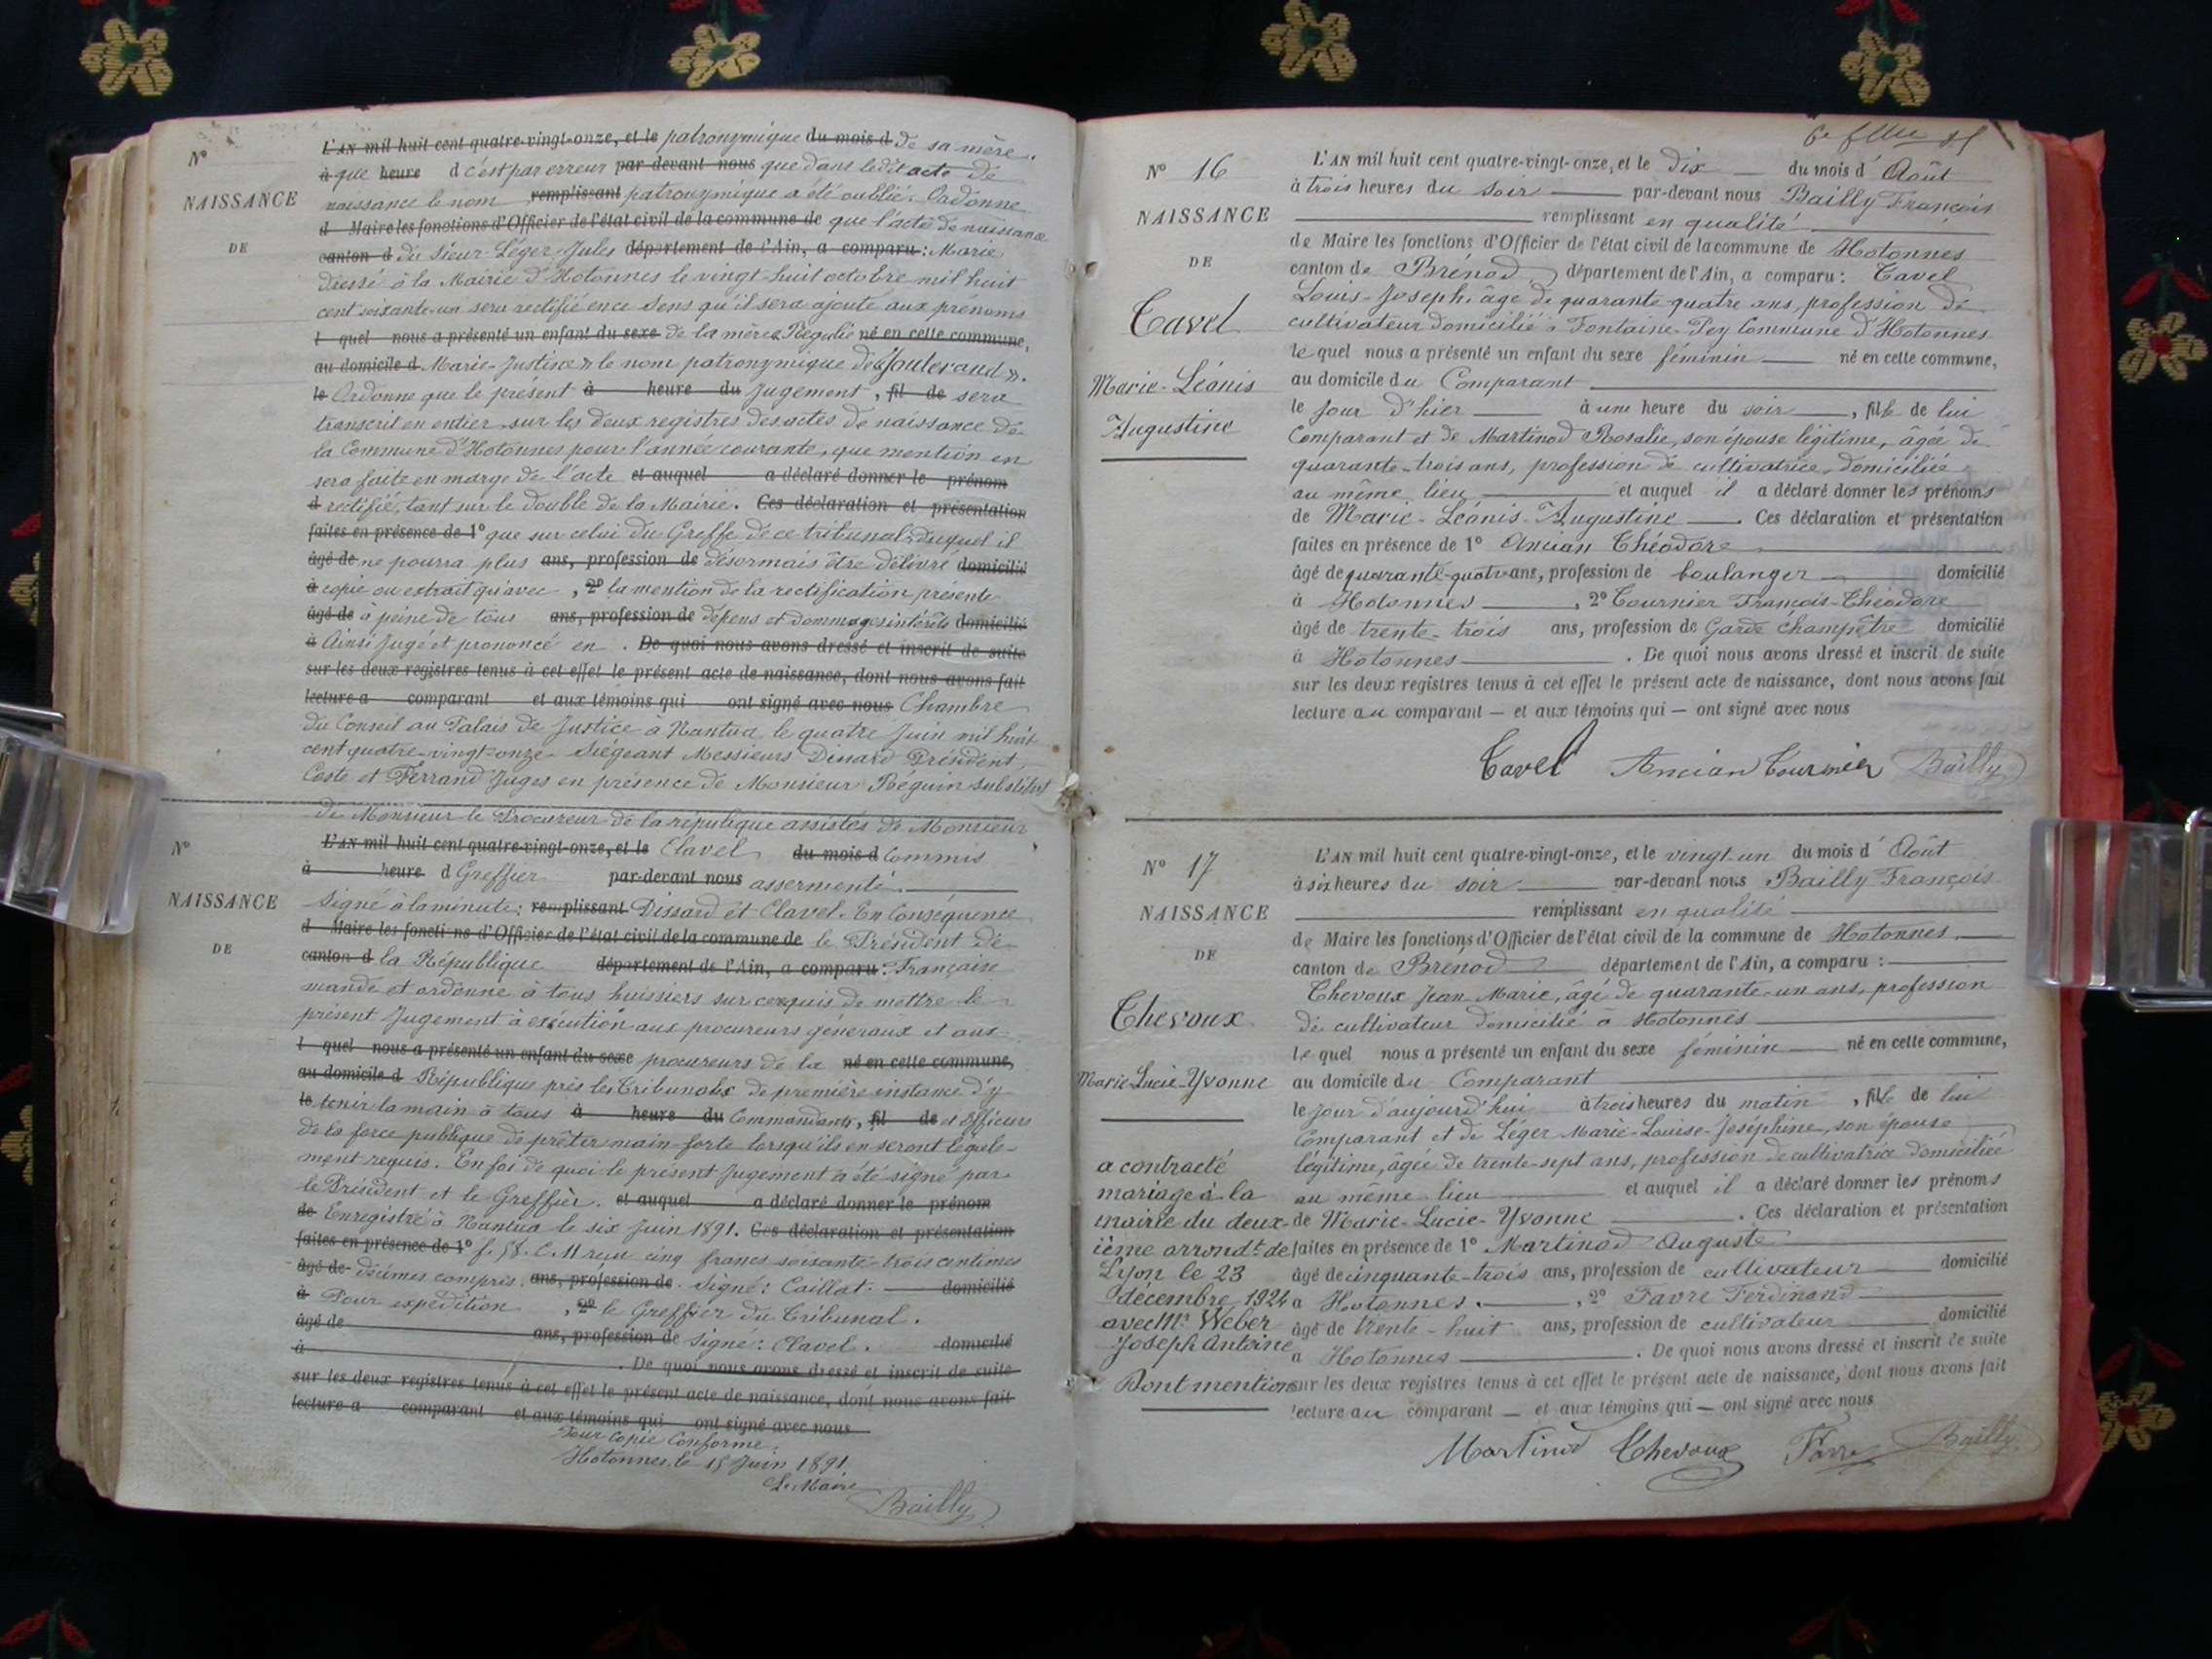 N°
NAISSANCE
DE
L'AN mil huit cent quatre-vingt-onze, et le patronymique du mois d de sa mère.
à que heure d c'est par erreur par-devant nous que dans ledit acte de
naissance le nom remplissant patronymique a été oublié. Ordonne
d Maire les fonctions d'Officier de l'état civil de la commune de que l'acte de naissance
canton d du Sieur Léger Jules département de l'Ain, a comparu : Marie
dressé à la Mairie d'Hotonnes le vingt-huit octobre mil huit
cent soixante-un sera rectifié en ce sens qu'il sera ajouté aux prénoms
l quel nous a présenté un enfant du sexe de la mère « Régulie né en cette commune,
au domicile d Marie-Justine » le nom patronymique de « Jouteraud ».
le Ordonne que le présent à heure du Jugement, fil de sera
transcrit en entier sur les deux registres des actes de naissance de
la Commune d'Hotonnes pour l'année courante, que mention en
sera faite en marge de l'acte et auquel a déclaré donner le prénom
d rectifié, tant sur le double de la Mairie. Ces déclaration et présentation
faites en présence de 1° que sur celui du Greffe de ce tribunal duquel il
âgé de ne pourra plus ans, profession de désormais être délivré domicilié
à copie ou extrait qu'avec , 2° la mention de la rectification présente
âgé de à peine de tous ans, profession de dépens et dommages intérêts domicilié
à Ainsi Jugé et prononcé en . De quoi nous avons dressé et inscrit de suite
sur les deux registres tenus à cet effet le présent acte de naissance, dont nous avons fait
lecture a comparant et aux témoins qui ont signé avec nous Chambre
du Conseil au Palais de Justice à Nantua le quatre Juin mil huit
cent quatre-vingt-onze Siégeant Messieurs Dissard Président,
Coste et Ferrand Juges en présence de Monsieur Béguin substitut
de Monsieur le Procureur de la république assistés de Monsieur
N°
NAISSANCE
DE
L'AN mil huit cent quatre-vingt-onze, et le Clavel du mois d Commis
à heure d Greffier par-devant nous assermenté.
Signé à la minute : remplissant Dissard et Clavel. En Conséquence
d Maire les fonctions d'Officier de l'état civil de la commune de le Président de
canton d la République département de l'Ain, a comparu : Française
mande et ordonne à tous huissiers sur ce requis de mettre le
présent Jugement à exécution aux procureurs généraux et aux
l quel nous a présenté un enfant du sexe procureurs de la né en cette commune,
au domicile d République près les Tribunaux de première instance d'y
le tenir la main à tous à heure du Commandants, fil de et officiers
de la force publique de prêter main-forte lorsqu'ils en seront légale-
ment requis. En foi de quoi le présent Jugement a été signé par
le Président et le Greffier. et auquel a déclaré donner le prénom
de Enregistré à Nantua le six Juin 1891. Ces déclaration et présentation
faites en présence de 1° f. 58. C. 11 reçu cinq francs soixante-trois centimes
âgé de décimes compris. ans, profession de . Signé : Caillat. domicilié
à Pour expédition , 2° le Greffier du Tribunal.
âgé de ans, profession de Signé : Clavel. domicilié
à . De quoi nous avons dressé et inscrit de suite
sur les deux registres tenus à cet effet le présent acte de naissance, dont nous avons fait
lecture a comparant et aux témoins qui ont signé avec nous
Pour Copie Conforme.
Hotonnes le 15 Juin 1891
Le Maire
Bailly
N° 16
NAISSANCE
DE
Tavel
Marie-Léonis
Augustine
L'AN mil huit cent quatre-vingt-onze, et le dix du mois d'Août
à trois heures du soir par-devant nous Bailly François
remplissant en qualité
de Maire les fonctions d'Officier de l'état civil de la commune de Hotonnes
canton de Brénod département de l'Ain, a comparu : Tavel
Louis-Joseph, âgé de quarante-quatre ans, profession de
cultivateur domicilié à Fontaine-Pey Commune d'Hotonnes
le quel nous a présenté un enfant du sexe féminin né en cette commune,
au domicile du Comparant
le jour d'hier à une heure du soir , fille de lui
Comparant et de Martinod Rosalie, son épouse légitime, âgée de
quarante-trois ans, profession de cultivatrice domiciliée
au même lieu et auquel il a déclaré donner les prénoms
de Marie-Léonis-Augustine . Ces déclaration et présentation
faites en présence de 1° Ancian Théodore
âgé de quarante-quatre ans, profession de boulanger domicilié
à Hotonnes , 2° Tournier François-Théodore
âgé de trente-trois ans, profession de Garde champêtre domicilié
à Hotonnes . De quoi nous avons dressé et inscrit de suite
sur les deux registres tenus à cet effet le présent acte de naissance, dont nous avons fait
lecture au comparant — et aux témoins qui — ont signé avec nous
Tavel Ancian Tournier Bailly
N° 17
NAISSANCE
DE
Chevoux
Marie-Lucie-Yvonne
a contracté
mariage à la
mairie du deux-
ième arrondt de
Lyon le 23
décembre 1924
avec Mr Weber
Joseph Antoine
Dont mention
L'AN mil huit cent quatre-vingt-onze, et le vingt-un du mois d'Août
à six heures du soir par-devant nous Bailly François
remplissant en qualité
de Maire les fonctions d'Officier de l'état civil de la commune de Hotonnes
canton de Brénod département de l'Ain, a comparu :
Chevoux Jean-Marie, âgé de quarante-un ans, profession
de cultivateur domicilié à Hotonnes
le quel nous a présenté un enfant du sexe féminin né en cette commune,
au domicile du Comparant
le jour d'aujourd'hui à trois heures du matin , fille de lui
Comparant et de Léger Marie-Louise-Joséphine, son épouse
légitime, âgée de trente-sept ans, profession de cultivatrice domiciliée
au même lieu et auquel il a déclaré donner les prénoms
de Marie-Lucie-Yvonne . Ces déclaration et présentation
faites en présence de 1° Martinod Auguste
âgé de cinquante-trois ans, profession de cultivateur domicilié
à Hotonnes , 2° Favre Ferdinand
âgé de trente-huit ans, profession de cultivateur domicilié
à Hotonnes . De quoi nous avons dressé et inscrit de suite
sur les deux registres tenus à cet effet le présent acte de naissance, dont nous avons fait
lecture au comparant — et aux témoins qui — ont signé avec nous
Martinod Chevoux Favre Bailly